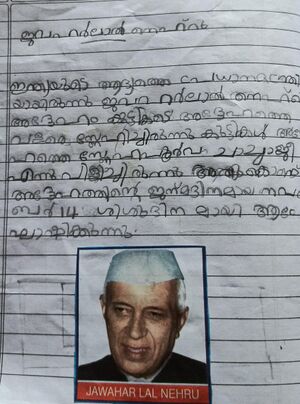 ജവഹർലാൽ നെഹ്റു
ഇന്ത്യയുടെ ആദ്യത്തെ പ്രധാനമന്ത്രി
യായിരുന്നു ജവഹർലാൽ നെഹ്റു
അദ്ദേഹം കുട്ടികളെ അദ്ദേഹത്തെ
വളരെ സ്നേഹിച്ചിരുന്നു കുട്ടികൾ അദ്ദേ
ഹത്തെ സ്നേഹപൂർവം ചാച്ചാജി
എന്ന് വിളിച്ചിരുന്നു അതുകൊണ്ട്
അദ്ദേഹത്തിന്റെ ജന്മദിനമായ നവം
ബർ 14 ശിശുദിനമായി ആഘോ
ഘോഷിക്കുന്നു.
JAWAHAR LAL NEHRU